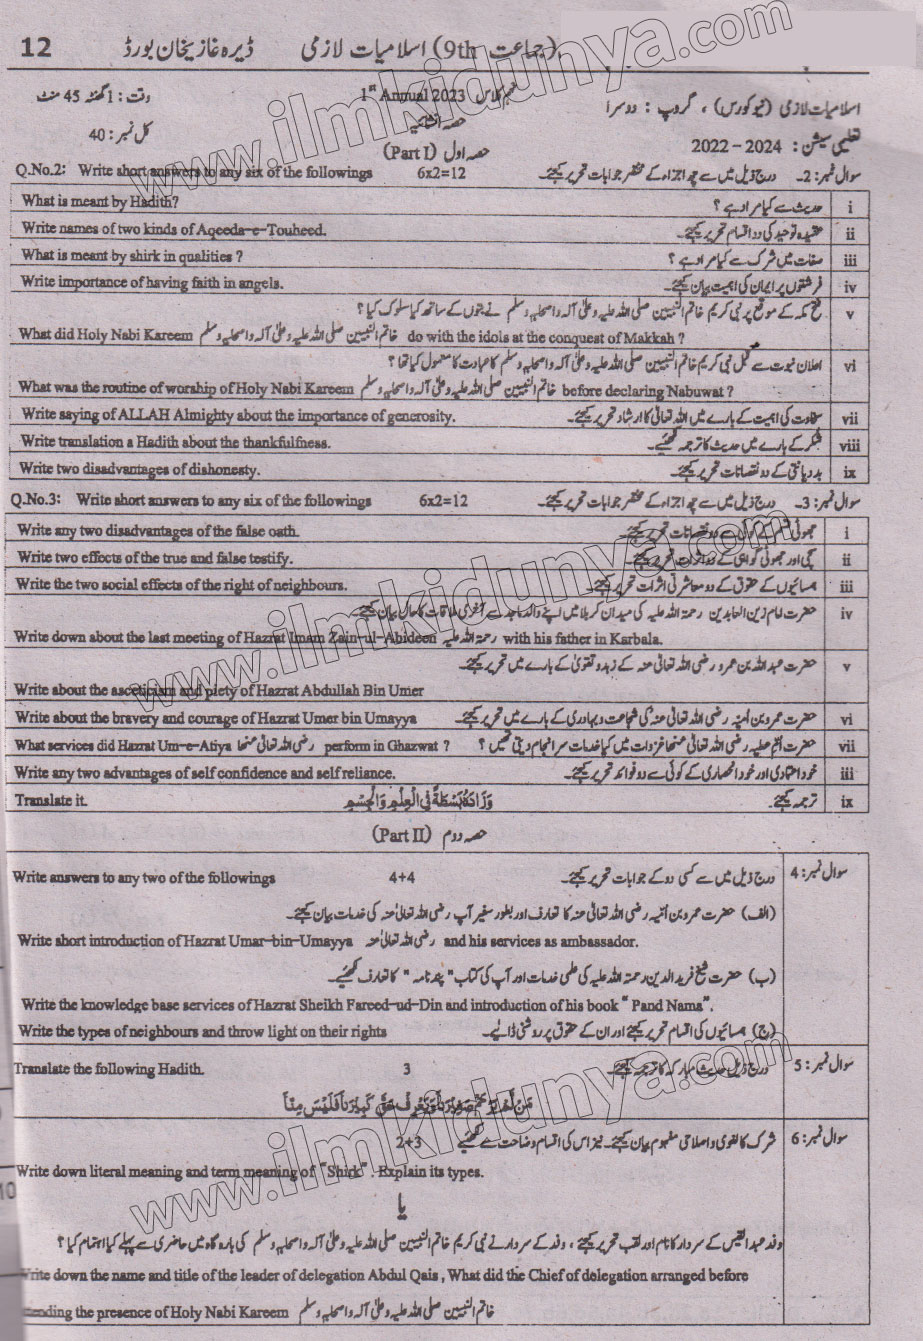 12 ڈیرہ غازیخان بورڈ اسلامیات لازمی (جماعت 9th)
اسلامیات لازمی (نیو کورس)، گروپ: دوسرا 1st Annual 2023 وقت: 1 گھنٹہ 45 منٹ
حصہ انشائیہ
تعلیمی سیشن: 2022 – 2024 حصہ اول (Part I) کل نمبر: 40
Q.No.2: Write short answers to any six of the followings 6x2=12 سوال نمبر: 2۔ درج ذیل میں سے چھ اجزاء کے مختصر جوابات تحریر کیجئے۔
What is meant by Hadith? حدیث سے کیا مراد ہے؟ i
Write names of two kinds of Aqeeda-e-Touheed. عقیدہ توحید کی دو اقسام تحریر کیجئے۔ ii
What is meant by shirk in qualities ? صفات میں شرک سے کیا مراد ہے ؟ iii
Write importance of having faith in angels. فرشتوں پر ایمان کی اہمیت بیان کیجئے۔ iv
فتح مکہ کے موقع پر نبی کریم خاتم النبیین صلی اللہ علیہ وعلیٰ آلہ واصحابہ وسلم نے بتوں کے ساتھ کیا سلوک کیا؟ v
What did Holy Nabi Kareem خاتم النبیین صلی اللہ علیہ وعلیٰ آلہ واصحابہ وسلم do with the idols at the conquest of Makkah ?
اعلان نبوت سے قبل نبی کریم خاتم النبیین صلی اللہ علیہ وعلیٰ آلہ واصحابہ وسلم کا عبادت کا معمول کیا تھا؟ vi
What was the routine of worship of Holy Nabi Kareem خاتم النبیین صلی اللہ علیہ وعلیٰ آلہ واصحابہ وسلم before declaring Nabuwat ?
Write saying of ALLAH Almighty about the importance of generosity. سخاوت کی اہمیت کے بارے میں اللہ تعالیٰ کا ارشاد تحریر کیجئے۔ vii
Write translation a Hadith about the thankfulness. شکر کے بارے میں حدیث کا ترجمہ لکھیے۔ viii
Write two disadvantages of dishonesty. بددیانتی کے دو نقصانات تحریر کیجئے۔ ix
Q.No.3: Write short answers to any six of the followings 6x2=12 سوال نمبر: 3۔ درج ذیل میں سے چھ اجزاء کے مختصر جوابات تحریر کیجئے۔
Write any two disadvantages of the false oath. جھوٹی کوئی سے دو نقصانات تحریر کیجئے۔ i
Write two effects of the true and false testify. سچی اور جھوٹی گواہی کے دو اثرات تحریر کیجئے۔ ii
Write the two social effects of the right of neighbours. ہمسائیوں کے حقوق کے دو معاشرتی اثرات تحریر کیجئے۔ iii
حضرت امام زین العابدین رحمتہ اللہ علیہ کی میدان کربلا میں اپنے والد ماجد سے آخری ملاقات کا حال بیان کیجئے۔ iv
Write down about the last meeting of Hazrat Imam Zain-ul-Abideen رحمتہ اللہ علیہ with his father in Karbala.
حضرت عبداللہ بن عمرو رضی اللہ تعالیٰ عنہ کے زہد و تقویٰ کے بارے میں تحریر کیجئے۔ v
Write about the asceticism and piety of Hazrat Abdullah Bin Umer
Write about the bravery and courage of Hazrat Umer bin Umayya حضرت عمرو بن اُمیہ رضی اللہ تعالیٰ عنہ کی شجاعت و بہادری کے بارے میں تحریر کیجئے۔ vi
What services did Hazrat Um-e-Atiya رضی اللہ تعالیٰ عنھا perform in Ghazwat ? حضرت اُمِّ عطیہ رضی اللہ تعالیٰ عنھا غزوات میں کیا خدمات سرانجام دیتی تھیں ؟ vii
Write any two advantages of self confidence and self reliance. خود اعتمادی اور خود انحصاری کے کوئی سے دو فوائد تحریر کیجئے۔ iii
Translate it. وَزَادَهُ بَسْطَةً فِي الْعِلْمِ وَالْجِسْمِ ترجمہ کیجئے۔ ix
حصہ دوم (Part II)
Write answers to any two of the followings 4+4 درج ذیل میں سے کسی دو کے جوابات تحریر کیجئے۔ سوال نمبر: 4
(الف) حضرت عمرو بن اُمیہ رضی اللہ تعالیٰ عنہ کا تعارف اور بطور سفیر آپ رضی اللہ تعالیٰ عنہ کی خدمات بیان کیجئے۔
Write short introduction of Hazrat Umar-bin-Umayya رضی اللہ تعالیٰ عنہ and his services as ambassador.
(ب) حضرت شیخ فرید الدین رحمتہ اللہ علیہ کی علمی خدمات اور آپ کی کتاب "پند نامہ" کا تعارف لکھیے۔
Write the knowledge base services of Hazrat Sheikh Fareed-ud-Din and introduction of his book " Pand Nama".
Write the types of neighbours and throw light on their rights (ج) ہمسائیوں کی اقسام تحریر کیجئے اور ان کے حقوق پر روشنی ڈالیے۔
Translate the following Hadith. 3 درج ذیل حدیث مبارکہ کا ترجمہ کیجئے۔ سوال نمبر: 5
مَنْ لَمْ يَرْحَمْ صَغِيْرَنَا وَيَعْرِفْ حَقَّ كَبِيْرِنَا فَلَيْسَ مِنَّا
2+3 شرک کا لغوی و اصلاحی مفہوم بیان کیجئے۔ نیز اس کی اقسام وضاحت سے لکھیے سوال نمبر: 6
Write down literal meaning and term meaning of "Shirk". Explain its types.
یا
وفد عبدالقیس کے سردار کا نام اور لقب تحریر کیجئے، وفد کے سردار نے نبی کریم خاتم النبیین صلی اللہ علیہ وعلیٰ آلہ واصحابہ وسلم کی بارگاہ میں حاضری سے پہلے کیا اہتمام کیا؟
Write down the name and title of the leader of delegation Abdul Qais, What did the Chief of delegation arranged before
tending the presence of Holy Nabi Kareem خاتم النبیین صلی اللہ علیہ وعلیٰ آلہ واصحابہ وسلم
www.ilmkidunya.com
www.ilmkidunya.com
www.ilmkidunya.com